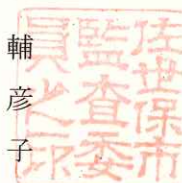 輔
彦
子
佐世保市
監査委
員之印